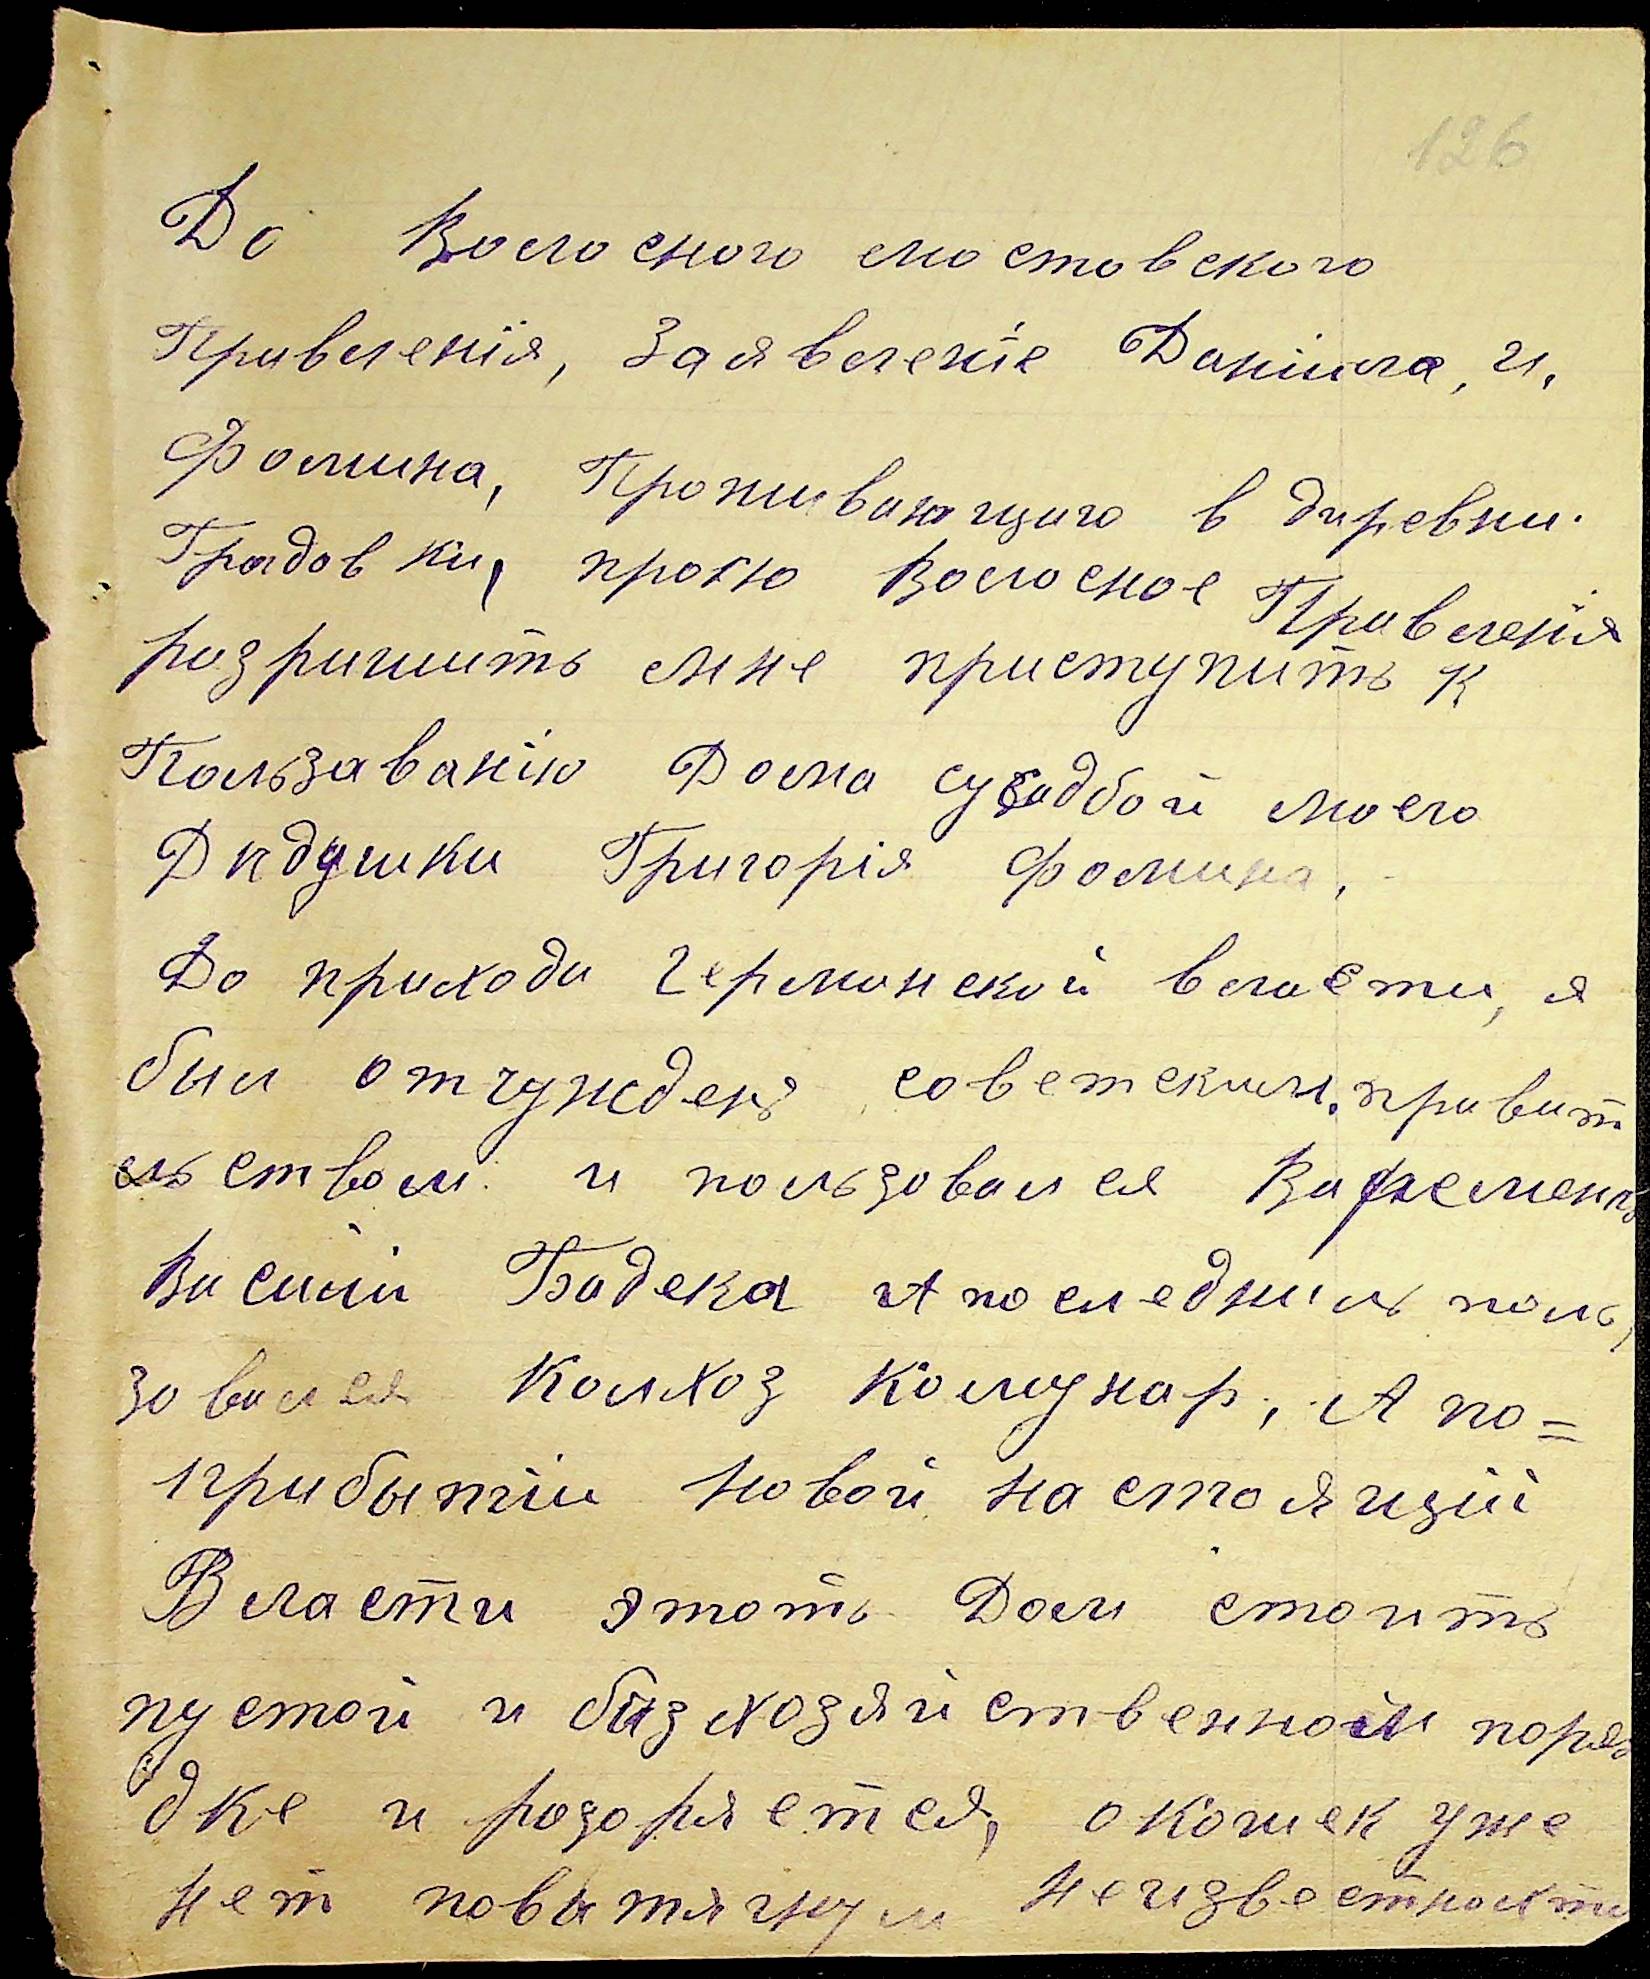 126
До Волосного мостовского
Правленія, Заявленіе Даніила, И.
Фомина, Проживающаго в диревни.
Градовки, прошю Волосное Правленія
розришить мне приступить к
Пользаванію Дома судбой моего
Дидушки Григорія Фомина,
До прихода Германской власти, я
был отчужденъ советским. правит
ельством и пользовался
Василій Бадека А последним поль,
зовался Колхоз Комунар, А по=
прибытіи новой настоящій
Власти этоть Дом стоить
пустой и бизхозяйственном поря
дке и розоряется, окошек уже
нет повитягнул